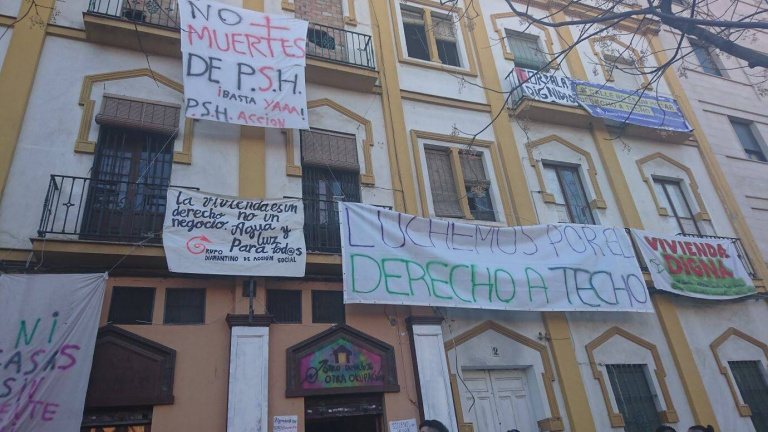 NO ✝
MUERTES
DE P.S.H.
¡BASTA YAAA!
P.S.H. ACCIÓN
POR LA
DIGNIDAD
DERECHO A TECHO
La vivienda es un
derecho no un
negocio. Agua y
luz
Para tod@s
GRUPO
DIAMANTINO DE ACCIÓN SOCIAL
LUCHEMOS POR EL
DERECHO A TECHO
VIVIENDA
DIGNA
NI
CASAS
SIN
GENTE
OTRA OCUPACION
2